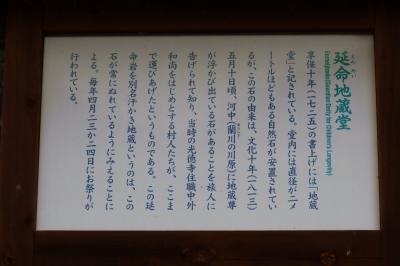 えん めい
延命地蔵堂
Enmeijizodo (Guardian Deity of Children's Longevity)
享保十年(一七二五)の書上げには「地蔵
堂」と記されている。堂内には直径が二メ
ートルほどもある自然石が安置されてい
るが、この石の由来は、文化十年(一八一三)
五月十日頃、河中(蘭川の川原)に地蔵尊
が浮かび出ている石があることを旅人に
告げられて知り、当時の光徳寺住職中外
和尚をはじめとする村人たちが、ここま
で運びあげたというものである。この延
命岩を別名汗かき地蔵というのは、この
石が常にぬれているようにみえることに
よる。毎年四月二三か二四日にお祭りが
行われている。